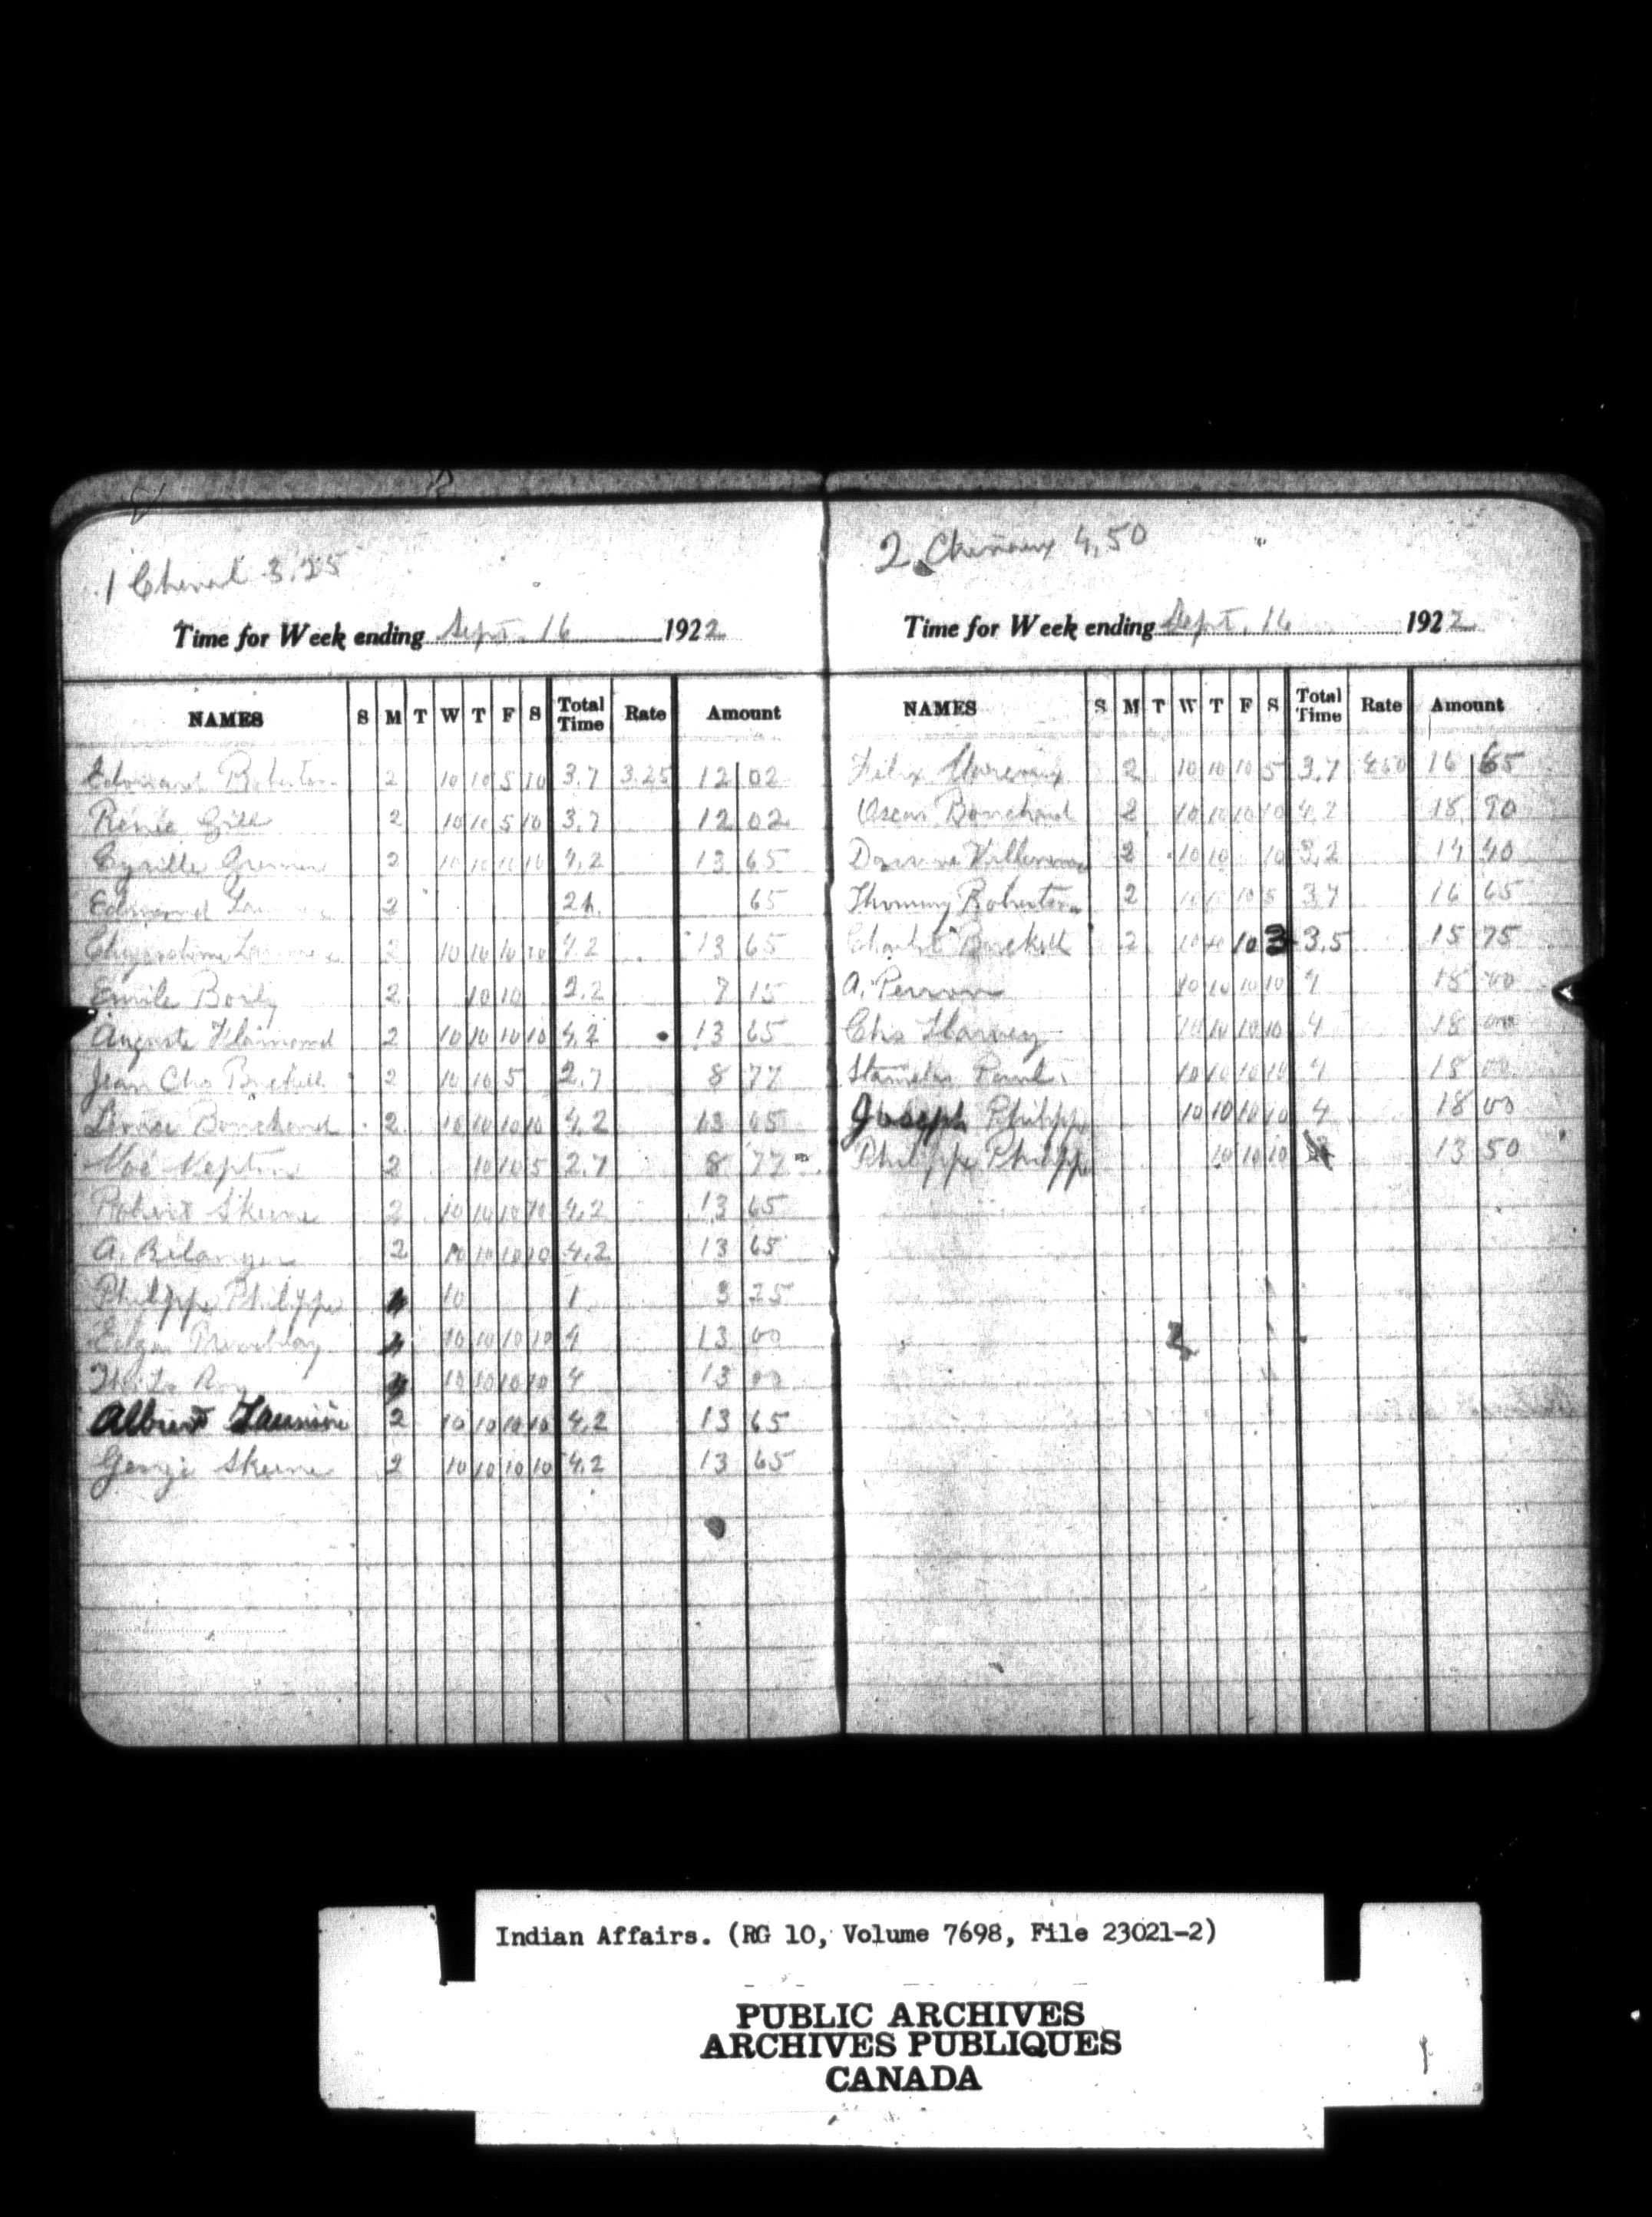 1 Cheval 3.25
Time for Week ending Sept. 16 1922
NAMES S M T W T F S Total Time Rate Amount
Edouard Robertson 2 10 10 5 10 3.7 3.25 12 02
Renée Gill 2 10 10 5 10 3.7 12 02
Cyrille 2 10 10 10 10 4.2 13 65
Edmond 2 2h. 65
2 10 10 10 10 4.2 13 65
Emile Boily 2 10 10 2.2 7 15
Auguste 2 10 10 10 10 4.2 13 65
Jean Chs 2 10 10 5 2.7 8 77
Bouchard 2 10 10 10 10 4.2 13 65
Noé Neptun 2 10 10 5 2.7 8 77
Robert Skeene 2 10 10 10 10 4.2 13 65
A. Belanger 2 10 10 10 10 4.2 13 65
Philippe Philippe 10 1 3 25
Edgar Tremblay 10 10 10 10 4 13 00
10 10 10 10 4 13 00
Albert 2 10 10 10 10 4.2 13 65
George Skeene 2 10 10 10 10 4.2 13 65
2 Chevaux 4,50
Time for Week ending Sept. 16 1922
NAMES S M T W T F S Total Time Rate Amount
Felix 2 10 10 10 5 3.7 4.50 16 65
Oscar Bouchard 2 10 10 10 10 4.2 18 90
2 10 10 10 3.2 14 40
Thommy Robertson 2 10 10 10 5 3.7 16 65
2 10 10 10 3 3.5 15 75
A. Perron 10 10 10 10 4 18 00
Chs Harvey 10 10 10 10 4 18 00
Stanislas Paul 10 10 10 10 4 18 00
Joseph Philippe 10 10 10 10 4 18 00
Philippe Philippe 10 10 10 13 50
Indian Affairs. (RG 10, Volume 7698, File 23021-2)
PUBLIC ARCHIVES
ARCHIVES PUBLIQUES
CANADA